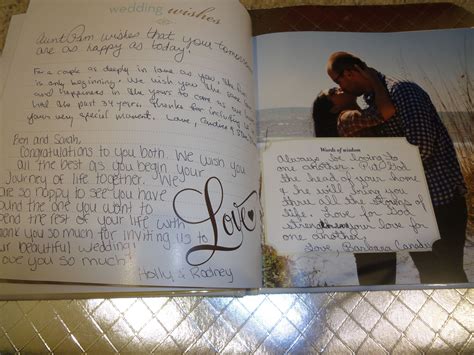 wedding wishes
Aunt Pam wishes that your tomorrows
are as happy as today.
For a couple as deeply in love as you, the
is only beginning. We wish you the same love
and happiness in the years to come as our
had the past 34 years. Thanks for including us
your very special moment. Love,
Ben and Sarah,
Congratulations to you both. We wish you
all the best as you begin your
journey of life together. We
are so happy to see you have
found the one you want to
spend the rest of your life with
thank you so much for inviting us to
your beautiful wedding!
Love you so much!
Holly & Rodney
Love
Words of wisdom
Always be loving to
one another. Put God
the head of your home
& he will bring you
thru all the storms of
life. Love for God
strengthens your love for
one another,
Love, Barbara